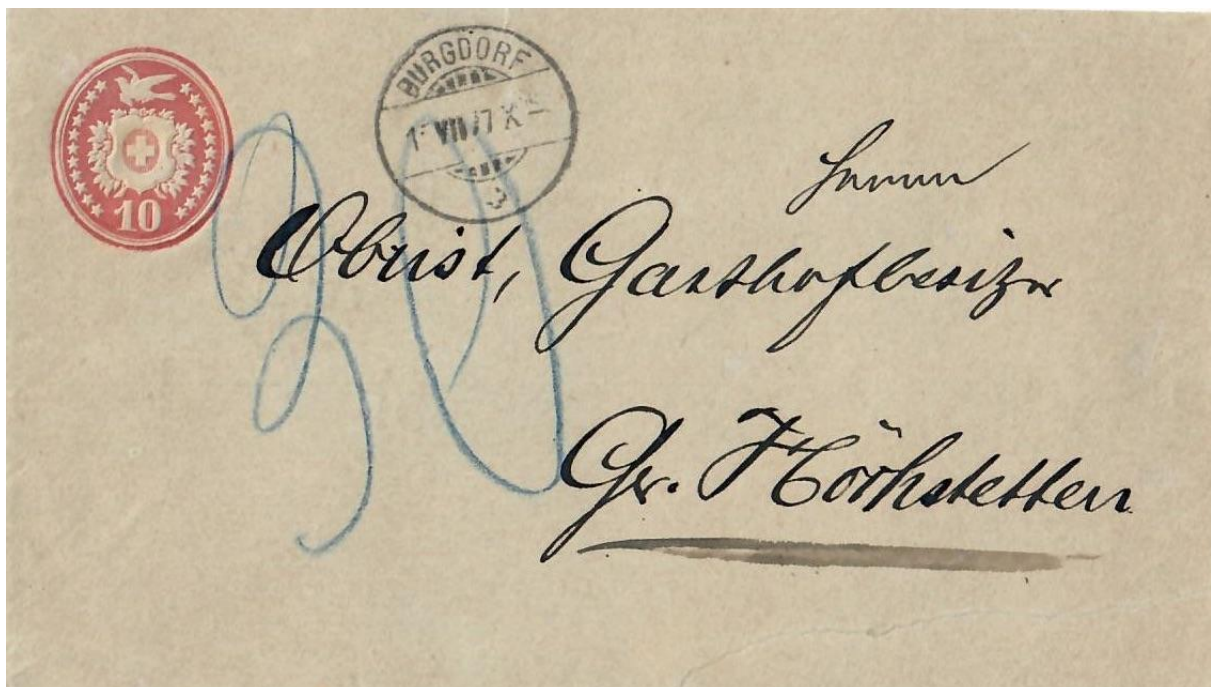 10
BURGDORF
VII 77 X
Herrn
Obrist, Gasthofbesizer
Gr. Höchstetten
30